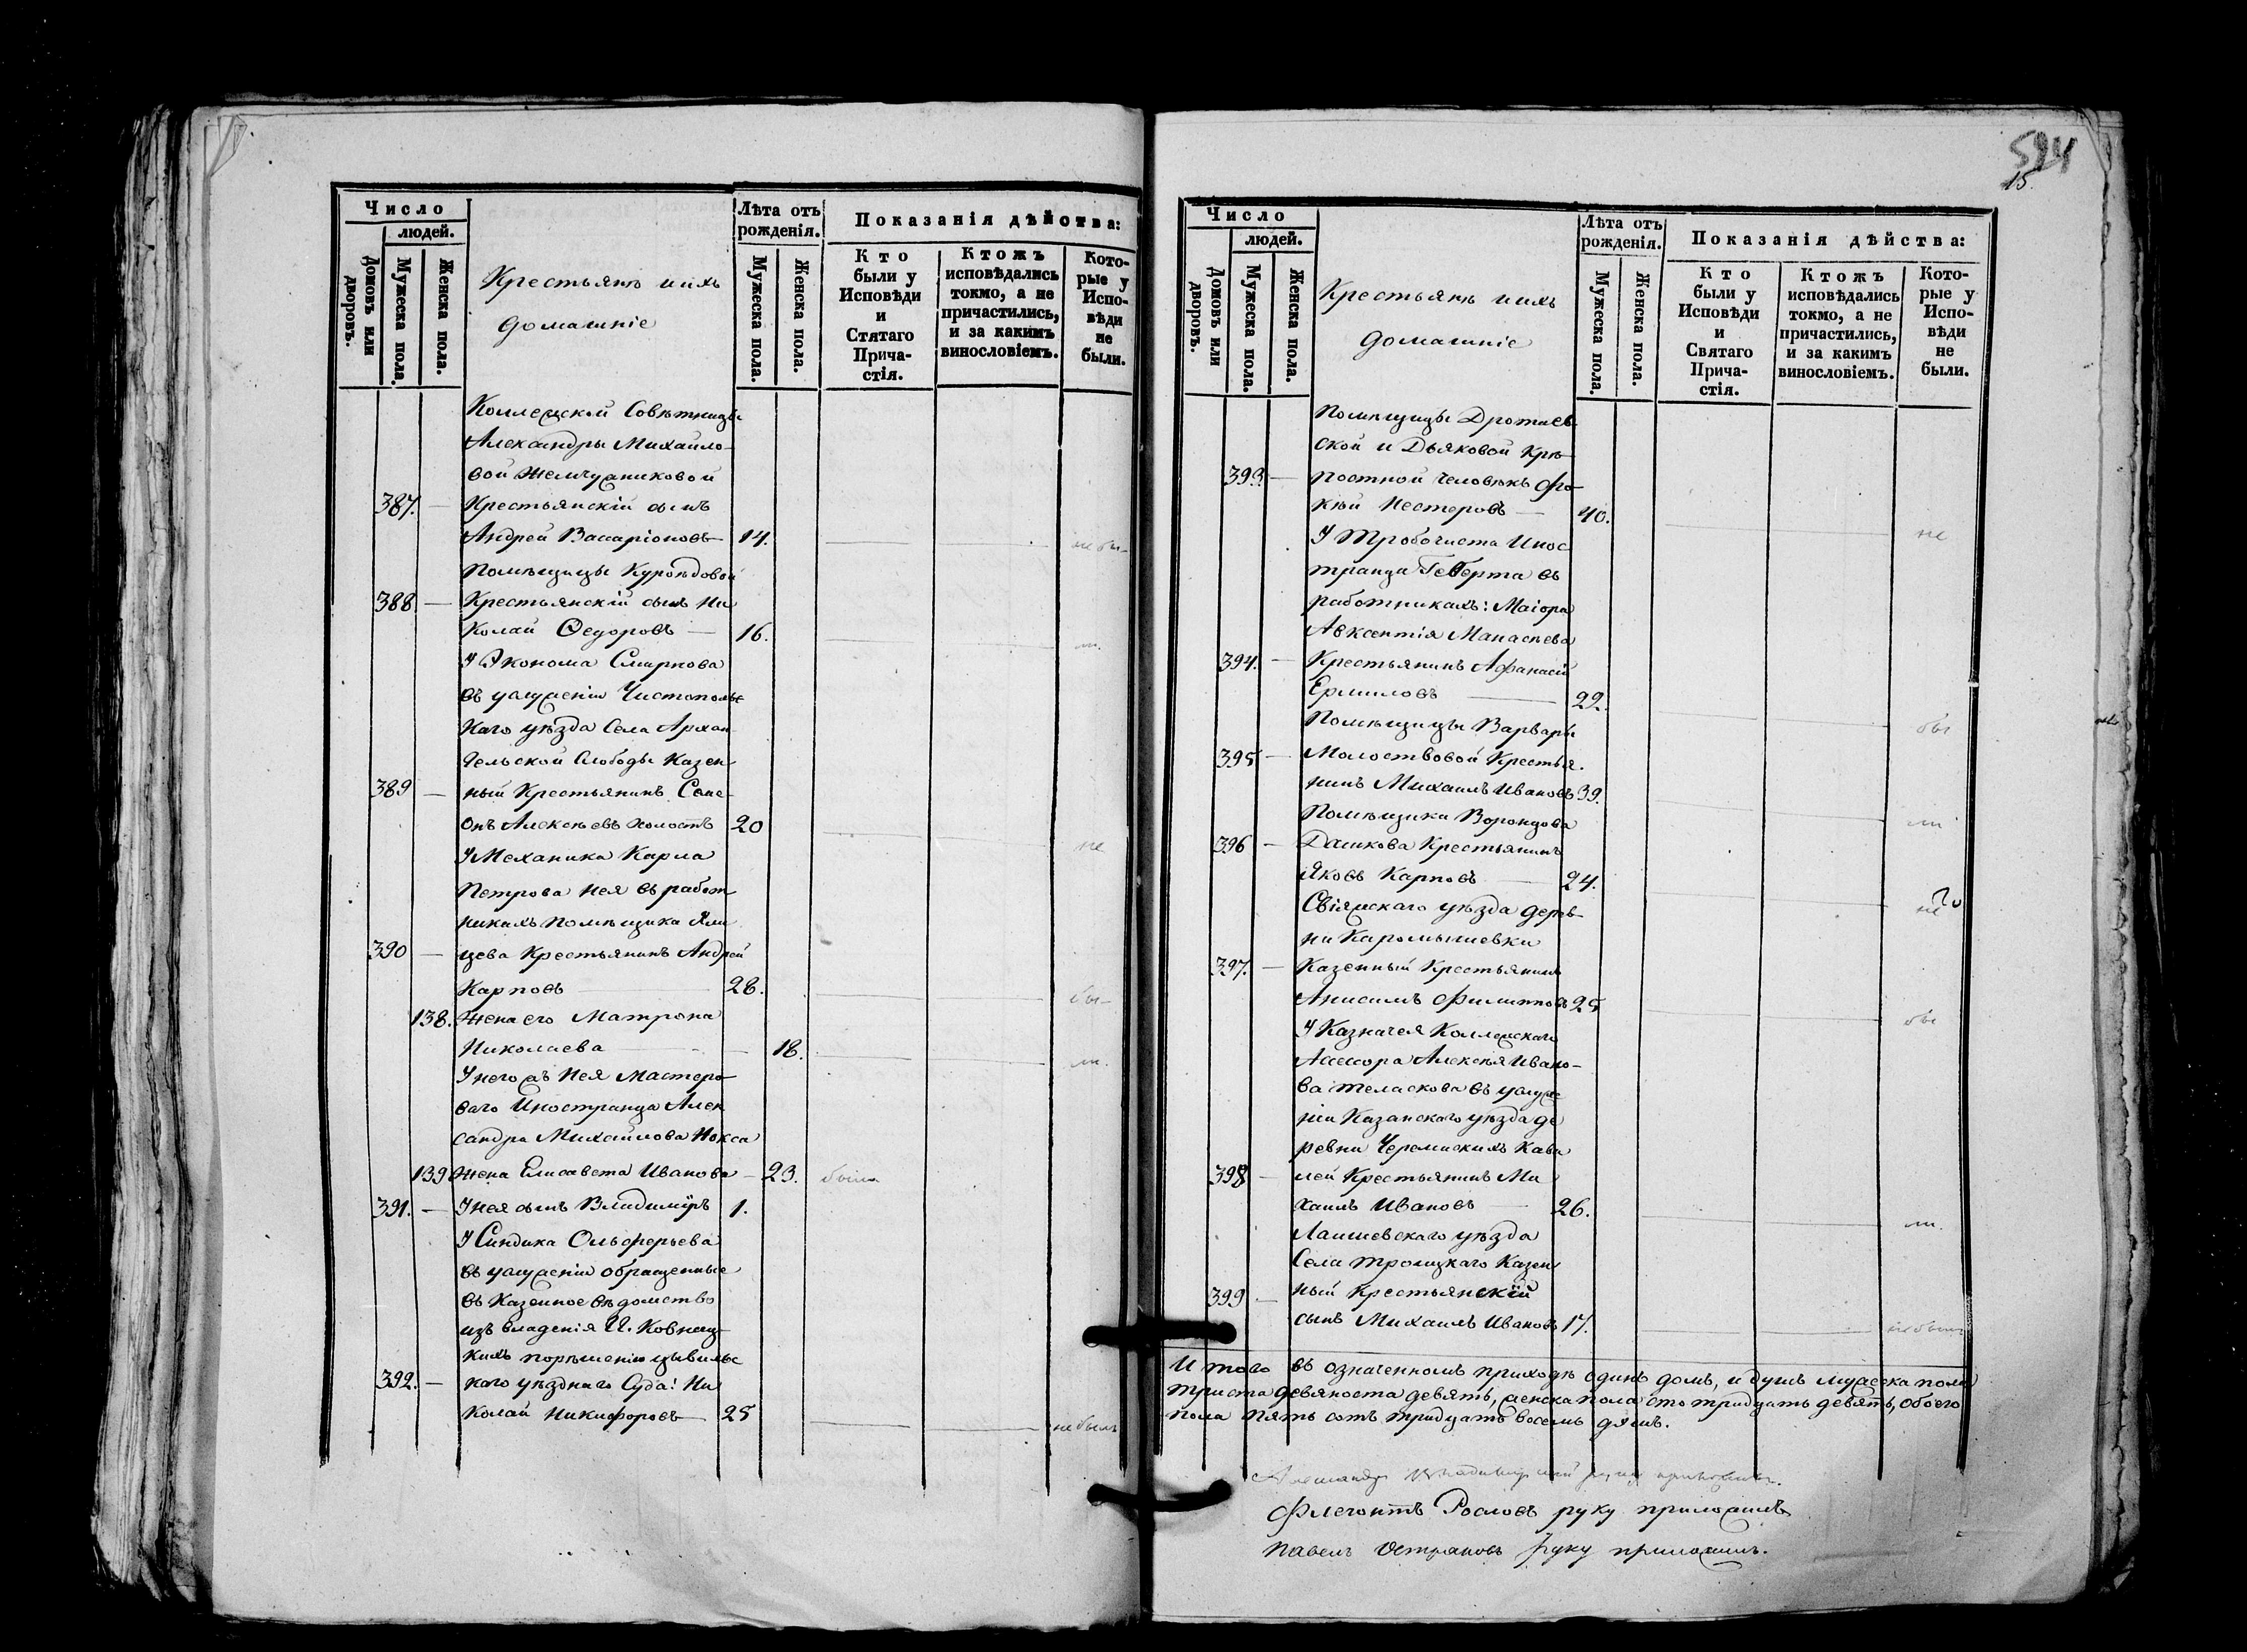 Число
людей.
Домовъ или дворовъ.
Мужеска пола.
Женска пола.
Крестьянѣ и ихъ
домашніе
Лѣта отъ
рожденія.
Мужеска пола.
Женска пола.
Показанія дѣйства:
Кто
были у
Исповѣди
и
Стятаго
Прича-
стія.
Ктожъ
исповѣдались
токмо, а не
причастились,
и за какимъ
винословіемъ.
Кото-
рые у
Испо-
вѣди
не
были.
Коллежской Совѣтницы
Александры Михайло-
вой Жемчужниковой
387. — Крестьянскій сынъ
Андрей Вассаріоновъ 14.
Помѣщицы Куроѣдовой
388 — Крестьянскій сынъ Ни
колай Ѳедоровъ — 16.
У Эконома Смирнова
въ услуженіи Чистополь
каго уѣзда Села Архан
гельской Слободы Казен
389 — ный Крестьянинъ Семе-
онъ Алексѣевъ холостъ 20 не
У Механика Карла
Петрова Нея въ работ
никахъ помѣщика Яли
390 — цева Крестьянинъ Андрей
Карповъ — 28. бы-
138. Жена его Матрона
Николаева — 18.
У него жъ Нея мастеро-
ваго Иностранца Алек
сандра Михайлова Нокса
139 Жена Елисавета Иванова — 23. была
391. — У нея сынъ Владиміръ 1.
У Синдика Ольферьева
въ услуженіи обращенные
въ Казенное вѣдомство
изъ владенія И. Ковнац-
кихъ порѣшенію цывильс
392. — каго уѣзднаго Суда: Ни
колай Никифоровъ — 25 не былъ
594
15.
Число
людей.
Домовъ или дворовъ.
Мужеска пола.
Женска пола.
Крестьянѣ и ихъ
домашніе
Лѣта отъ
рожденія.
Мужеска пола.
Женска пола.
Показанія дѣйства:
Кто
были у
Исповѣди
и
Святаго
Прича-
стія.
Ктожъ
исповѣдались
токмо, а не
причастились,
и за какимъ
винословіемъ.
Кото-
рые у
Испо-
вѣди
не
были.
Помѣщицы Дротаев-
ской и Дьяковой Крѣ-
393. — постной человѣкъ Фо-
кѣй Нестеровъ — 40. не
У Трубочиста Инос
транца Геберта въ
работникахъ: Маіора
Авксентія Манасеева
394. — Крестьянинъ Афанасій
Ермиловъ — 22. бы
Помѣщицы Варвары
395 — Молоствовой Крестья-
нинъ Михаилъ Ивановъ 39.
Помѣщика Воронцова
396 — Дашкова Крестьянинъ
Яковъ Карповъ — 24. не
Свіяжскаго уѣзда дерев-
ни Карамышевки
397. — Казенный Крестьянинъ
Анисимъ Филипповъ 25 бы
У Казначея Коллежскаго
Ассесора Алексѣя Ивано-
ва Теласкова въ услуже
ніи Казанскаго уѣзда де
ревни Черемискихъ Кави
398 — лей Крестьянинъ Ми
хаилъ Ивановъ — 26.
Лаишевскаго уѣзда
Села Троицкаго Казен
399 — ный крестьянскій
сынъ Михаилъ Ивановъ 17. не былъ
Итого въ означенномъ приходѣ одинъ домъ, и душъ мужеска пола
триста девяноста девять, женска пола сто тридцать девять, обоего
пола пять сотъ тридцать восемь душъ.
Александръ Владимірскій руку приложилъ.
Флегонтъ Рословъ руку приложилъ
Павелъ руку приложилъ.